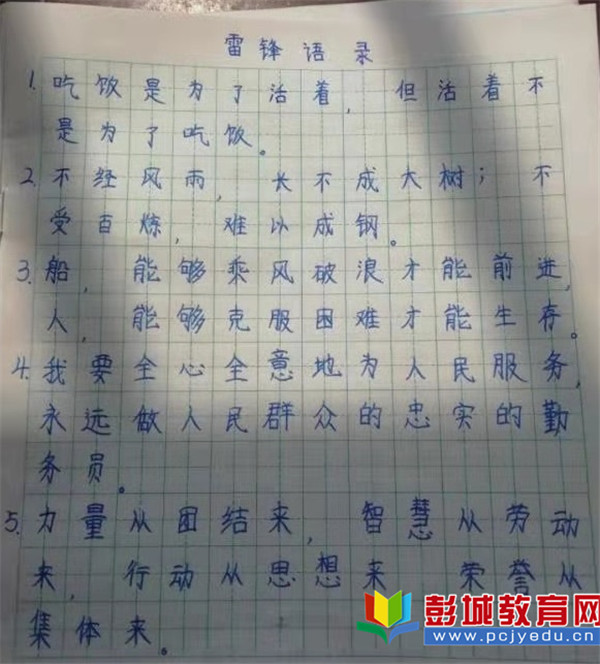 雷锋语录
1.吃饭是为了活着，但活着不
是为了吃饭。
2.不经风雨，长不成大树；不
受百炼，难以成钢。
3.船，能够乘风破浪才能前进，
人，能够克服困难才能生存。
4.我要全心全意地为人民服务，
永远做人民群众的忠实的勤
务员。
5.力量从团结来，智慧从劳动
来，行动从思想来 荣誉从
集体来。
彭城教育网
www.pcjyedu.cn